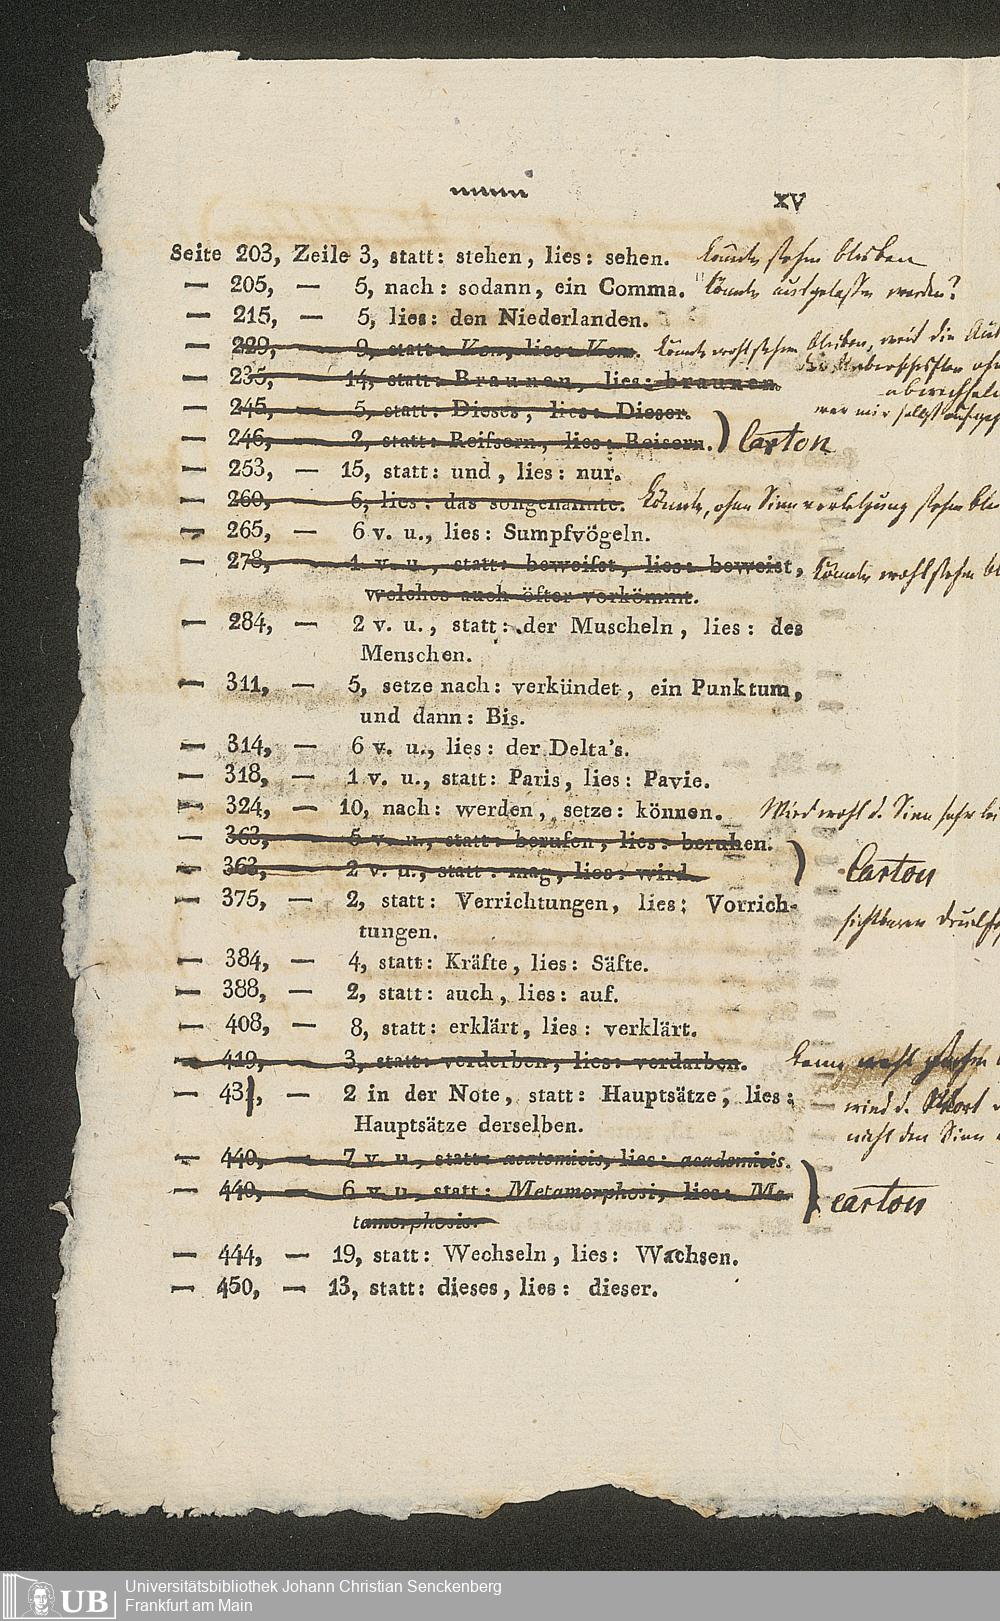 XV
Seite 203, Zeile 3, statt: stehen, lies: sehen. könnte stehn bleiben
— 205, — 5, nach: sodann, ein Comma. könnte ausgelassen werden?
— 215, — 5, lies: den Niederlanden.
— 229, — 9, statt: Kon, lies: Kom. könnte wohl stehen bleiben, weil die
— 235, — 14, statt: Braunen, lies: braunen.
— 245, — 5, statt: Dieses, lies: Dieser.
— 246, — 2, statt: Reifsern, lies: Reisern. ) Carton
— 253, — 15, statt: und, lies: nur.
— 260, — 6, lies: das songenannte. könnte, ohne Sinnverletzung stehen
— 265, — 6 v. u., lies: Sumpfvögeln.
— 278, — 1 v. u., statt: beweifst, lies: beweist, könnte wohl stehen
welches auch öfter vorkömmt.
— 284, — 2 v. u., statt: der Muscheln, lies: des
Menschen.
— 311, — 5, setze nach: verkündet, ein Punktum,
und dann: Bis.
— 314, — 6 v. u., lies: der Delta's.
— 318, — 1 v. u., statt: Paris, lies: Pavie.
— 324, — 10, nach: werden, setze: können. Wird wohl d. Sinn sehr
— 363, — 5 v. u., statt: berufen, lies: beruhen.
— 363, — 2 v. u., statt: mag, lies: wird. ) Carton
— 375, — 2, statt: Verrichtungen, lies: Vorrich-
tungen.
— 384, — 4, statt: Kräfte, lies: Säfte.
— 388, — 2, statt: auch, lies: auf.
— 408, — 8, statt: erklärt, lies: verklärt.
— 419, — 3, statt: verderben, lies: verdarben. kann wohl stehen
— 431, — 2 in der Note, statt: Hauptsätze, lies:
Hauptsätze derselben. nicht den Sinn
— 440, — 7 v. u., statt: lies: academicis.
— 440, — 6 v. u., statt: Metamorphosi, lies: Me-
tamorphosis. ) carton
— 444, — 19, statt: Wechseln, lies: Wachsen.
— 450, — 13, statt: dieses, lies: dieser.
UB Universitätsbibliothek Johann Christian Senckenberg
Frankfurt am Main